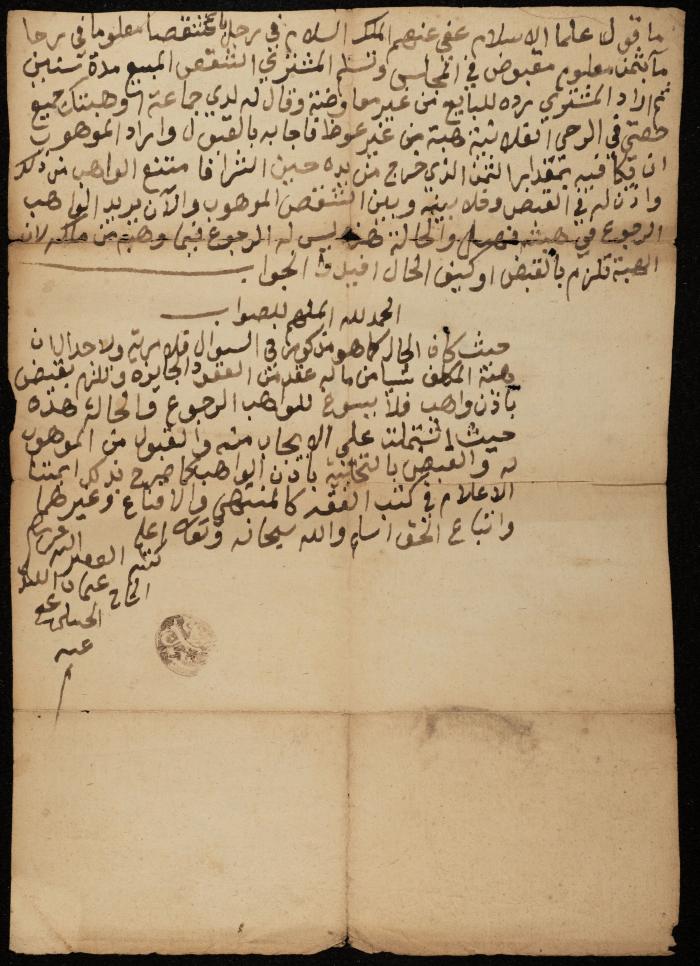 ما قول علما الاسلام عفى عنهم الملك السلام في رجل باع شقصا معلوما في رحا
مآ بثمن معلوم مقبوض في المجلس وتسلم المشتري الشقص المبيع مدة سنين
ثم اراد المشتري رده للبايع من غير معاوضة وقال له لدي جماعة اوهبتك جميع
حصتي في الرحى الفلانية هبة من غير عوظ فاجابه بالقبول واراد الموهوب
ان يكافيه بمقدار الثمن الذي خرج من يده حين الشرا فامتنع الواهب من ذلك
واذن له في القبض وخلا بينه وبين الشقص الموهوب والآن يريد الواهب
الرجوع في هبته فهل والحالة هذه ليس له الرجوع فيما وهبه من ملكه لان
الهبة تلزم بالقبض او كيف الحال افيدوا الجواب
الحمد لله الملهم للصواب
حيث كان الحال كما هو مذكور في السوال فلا مرية ولا جدال ان
هبة المكلف شيا من ماله عقد من العقود الجايزه وتلزم بقبض
باذن واهب فلا يسوغ للواهب الرجوع والحالة هذه
حيث اشتملت على الايجاب منه والقبول من الموهوب
له والقبض بالتخلية باذن الواهب كما صرح بذلك ايمتنا
الاعلام في كتب الفقه كالمنتهى والاقناع وغيرهما
واتباع الحق اسلم والله سبحانه وتعالى اعلم
كتبه الفقير اليه عز شانه
الحاج عثمان
الحنبلي عفي
عنه